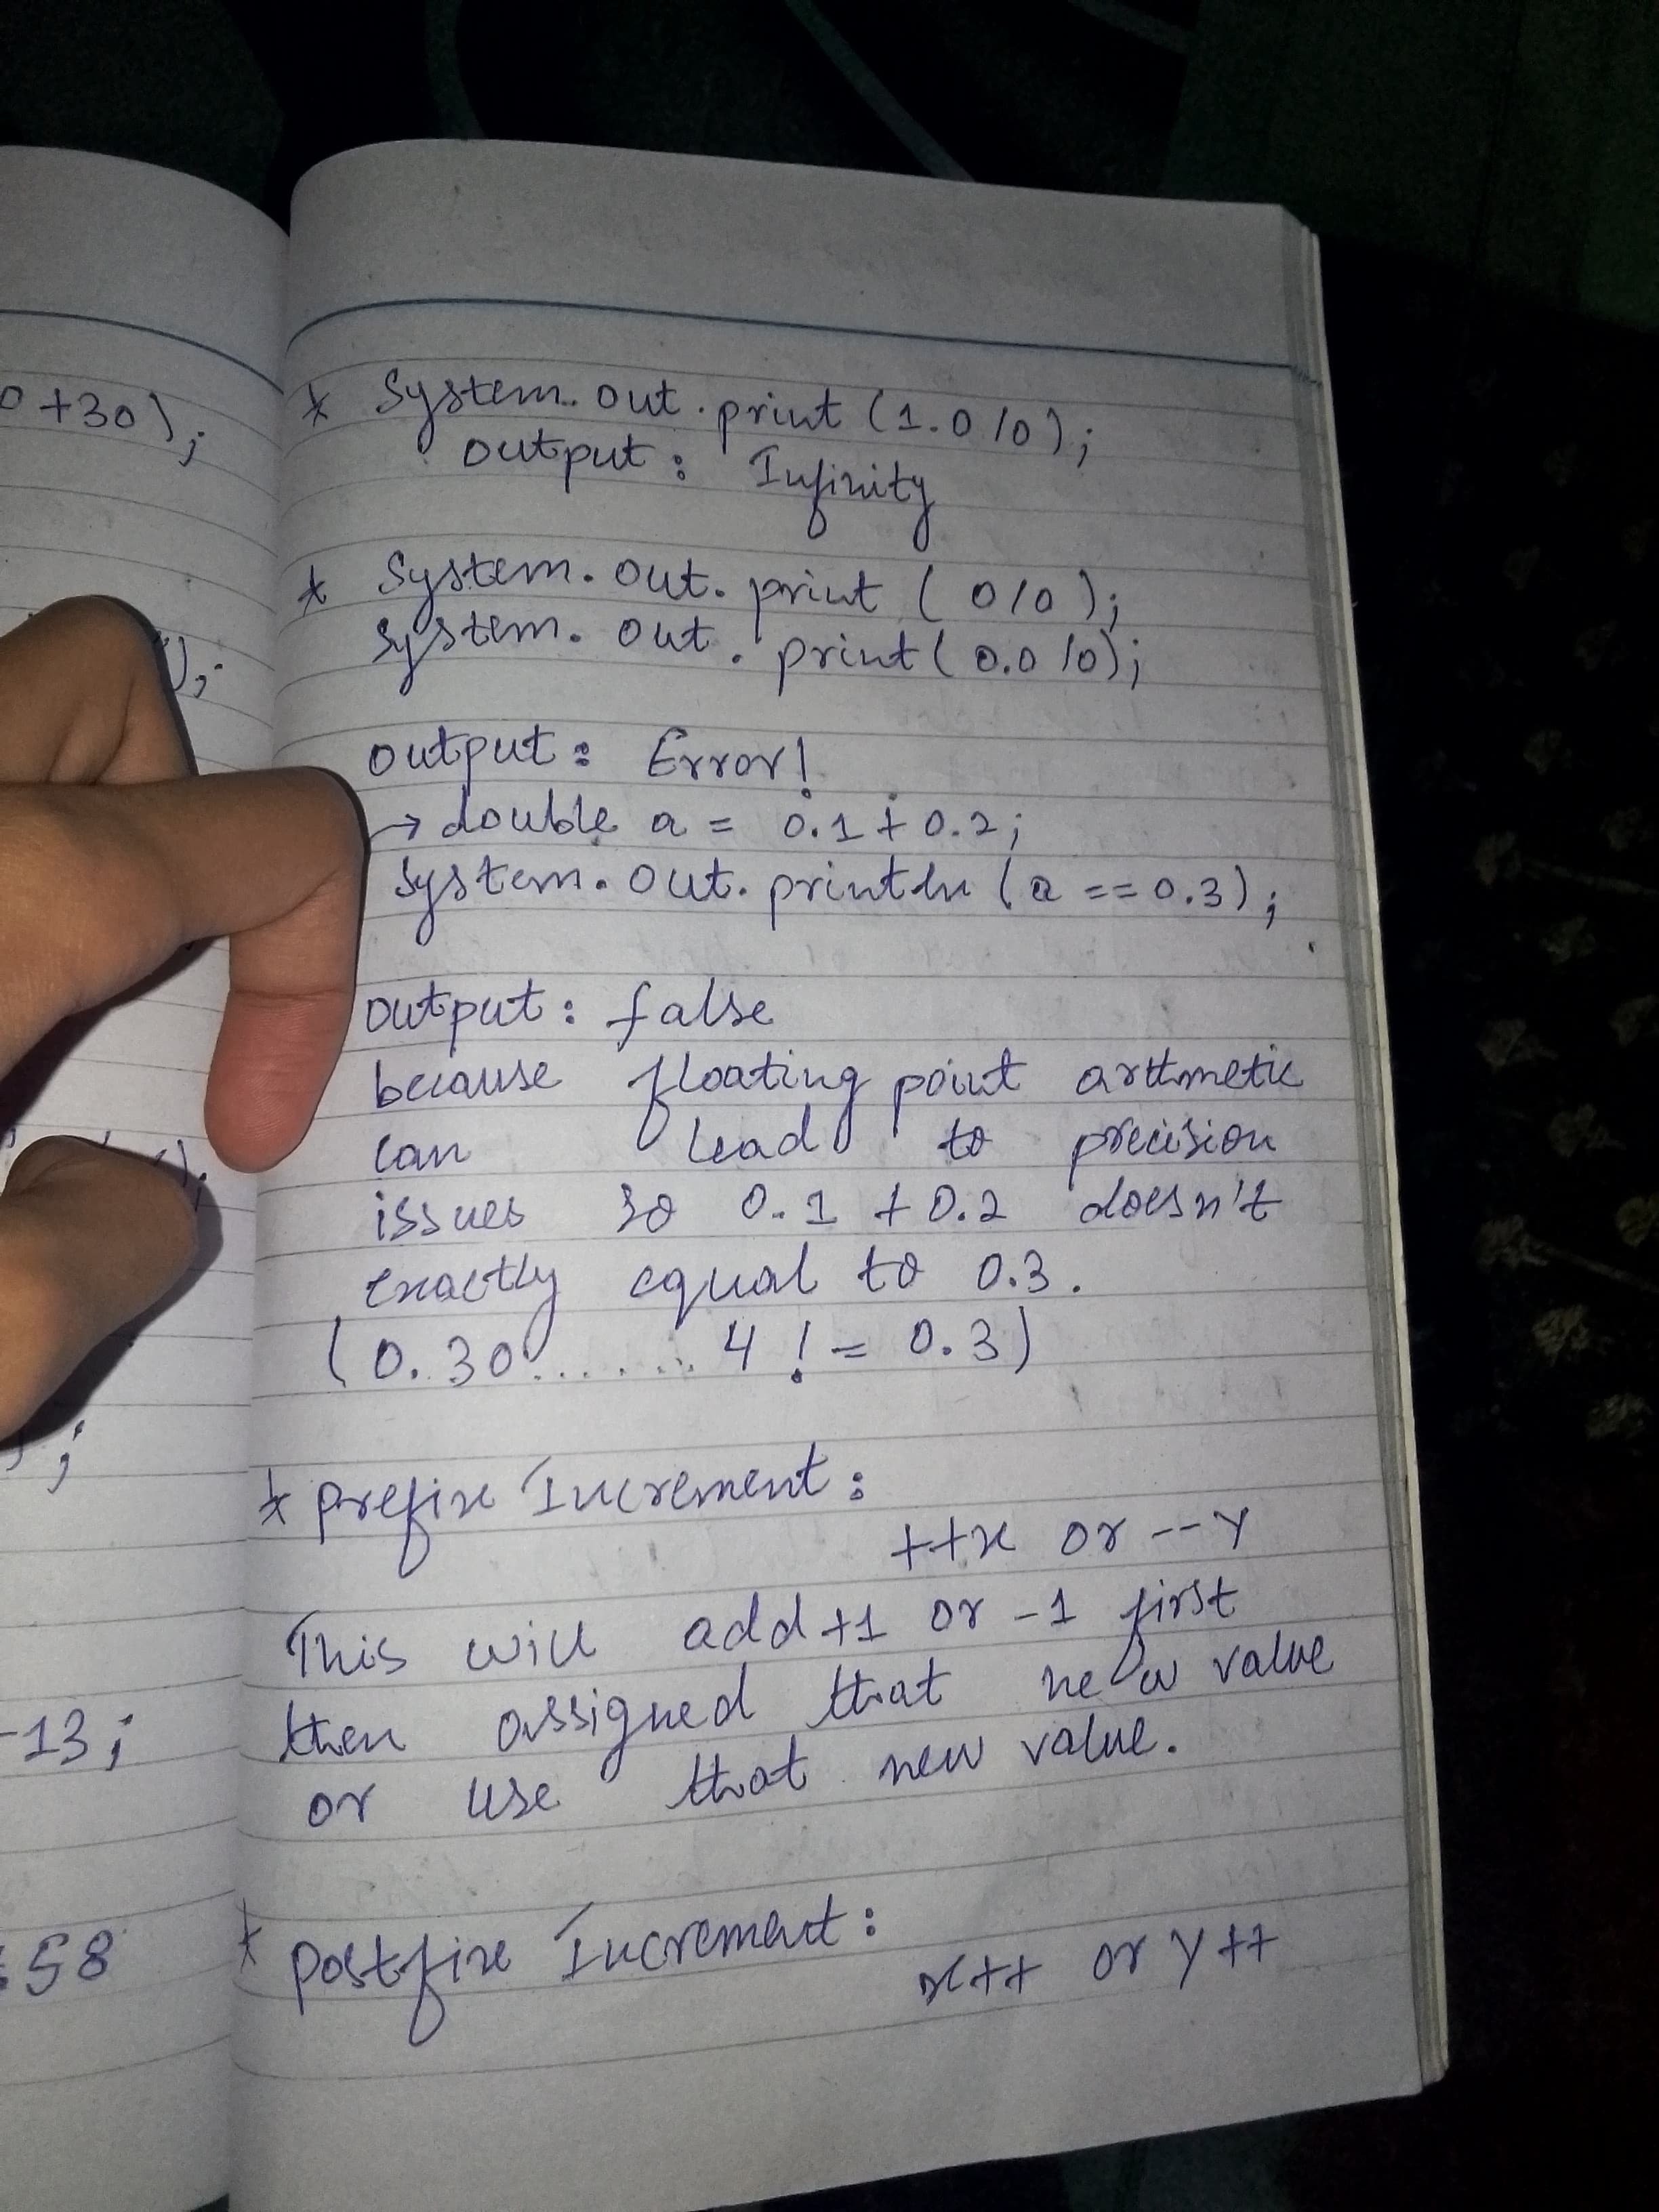 0+30);
);
;
-13;
58
* System.out.print(1.0/0);
output: Infinity
* System.out.print(0/0);
System.out.print(0.0/0);
output: Error!
→ double a = 0.1+0.2;
System.out.println(a==0.3);
output: false
because floating point arthmetic
can lead to precision
issues so 0.1+0.2 doesn't
exactly equal to 0.3.
(0.30....... 4 != 0.3)
* prefix Increment:
++x or --y
This will add +1 or -1 first
then assigned that new value
or use that new value.
* Postfix Increment:
x++ or y++